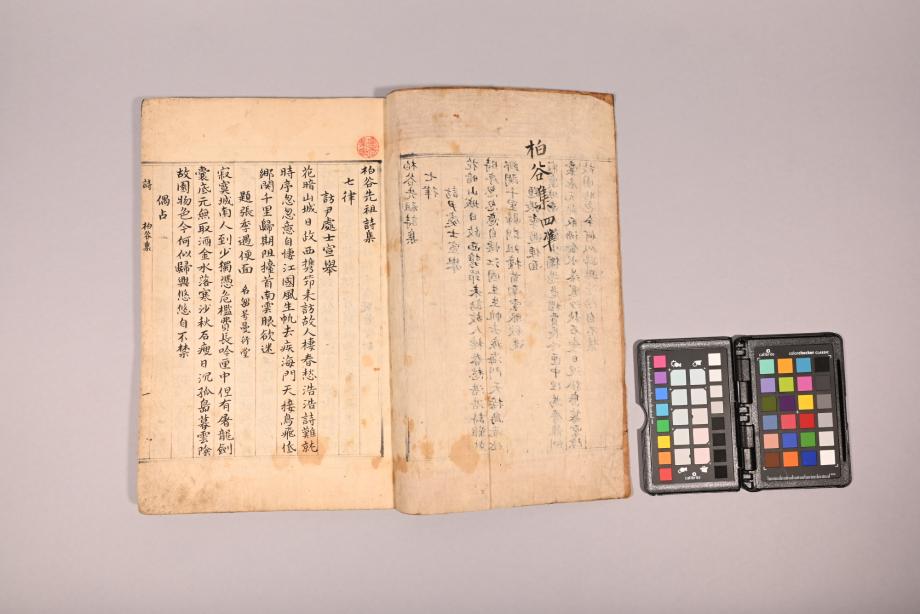 柏谷集 四單
柏谷先祖詩集
七律
訪尹處士宣舉
花暗山城日故西携笻來訪故人棲春愁浩浩詩難就
時序忽忽意自悽江國風生帆去疾海門天接鳥飛低
鄉關千里歸期阻擡首南雲眼欲迷
題張季遇便面
寂寞城南人到少獨憑危檻費長吟匣中但有屠龍劍
囊底元無取酒金水落寒沙秋石瘦日沉孤島暮雲陰
故園物色今何似歸興悠悠自不禁
偶占
詩
柏谷集
一
calibrite
colorchecker CLASSIC
calibrite